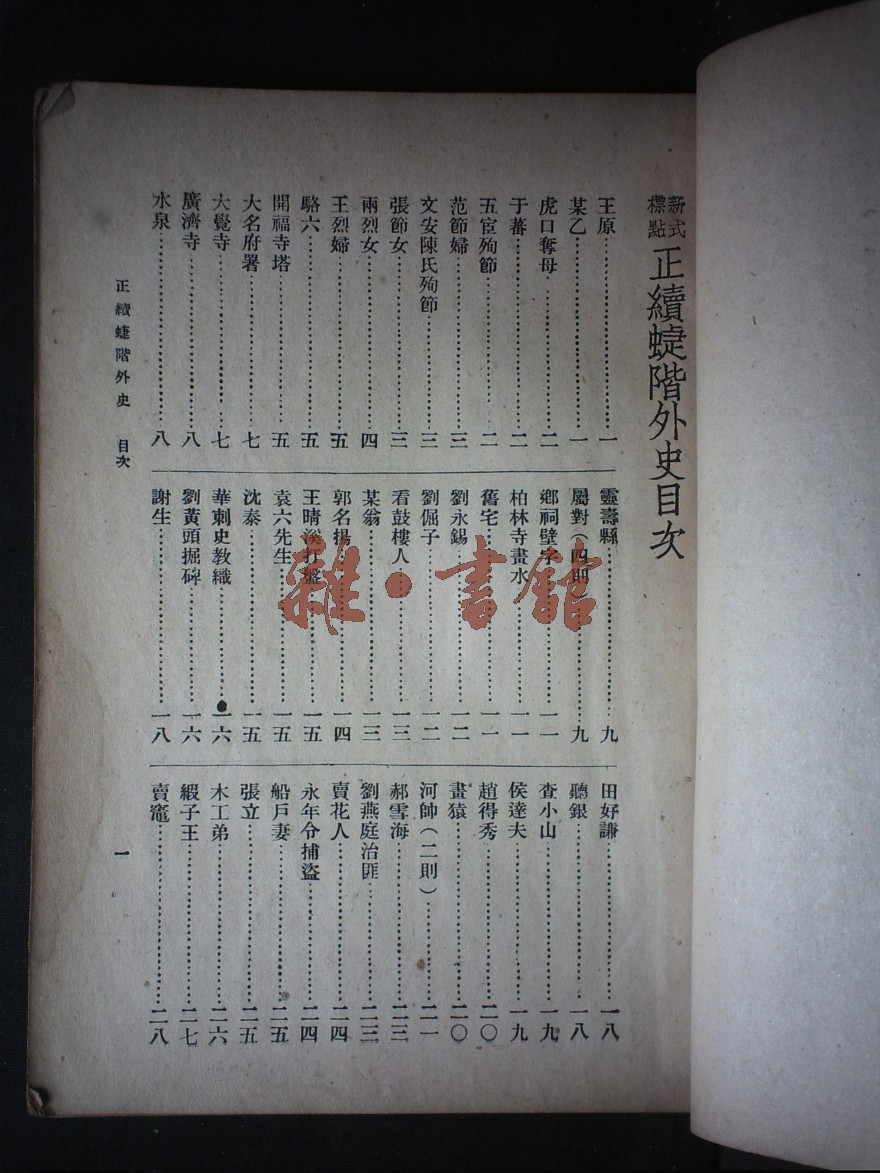 新式
標點
正續蜨階外史目次
王原……一
某乙……一
虎口奪母……二
于蕃……二
五宦殉節……二
范節婦……三
文安陳氏殉節……三
張節女……三
兩烈女……四
王烈婦……五
駱六……五
開福寺塔……五
大名府署……七
大覺寺……七
廣濟寺……八
水泉……八
靈壽縣……九
屬對(四則)……九
鄉祠壁字……一一
柏林寺畫水……一一
舊宅……一一
劉永錫……一二
劉倔子……一二
看鼓樓人……一三
某翁……一三
郭名揚……一四
王晴溪打盤……一五
袁六先生……一五
沈泰……一五
華刺史教織……一六
劉黃頭掘碑……一六
謝生……一八
田好謙……一八
聽銀……一八
查小山……一九
侯達夫……一九
趙得秀……二〇
畫猿……二〇
河帥(二則)……二一
郝雪海……二三
劉燕庭治匪……二三
賣花人……二四
永年令捕盜……二四
船戶妻……二五
張立……二五
木工弟……二六
緞子王……二七
賣竈……二八
正續蜨階外史 目次
一
雜·書館